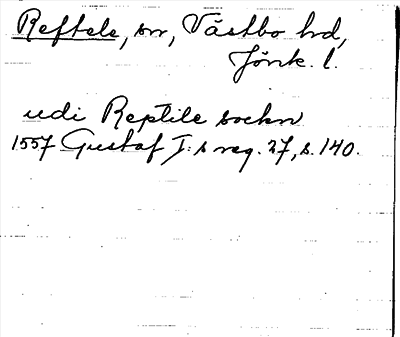 Reftele, sn, Västbo hd,
Jönk. l.
udi Reptile sockn
1557 Gustaf I:s reg. 27, s. 140.